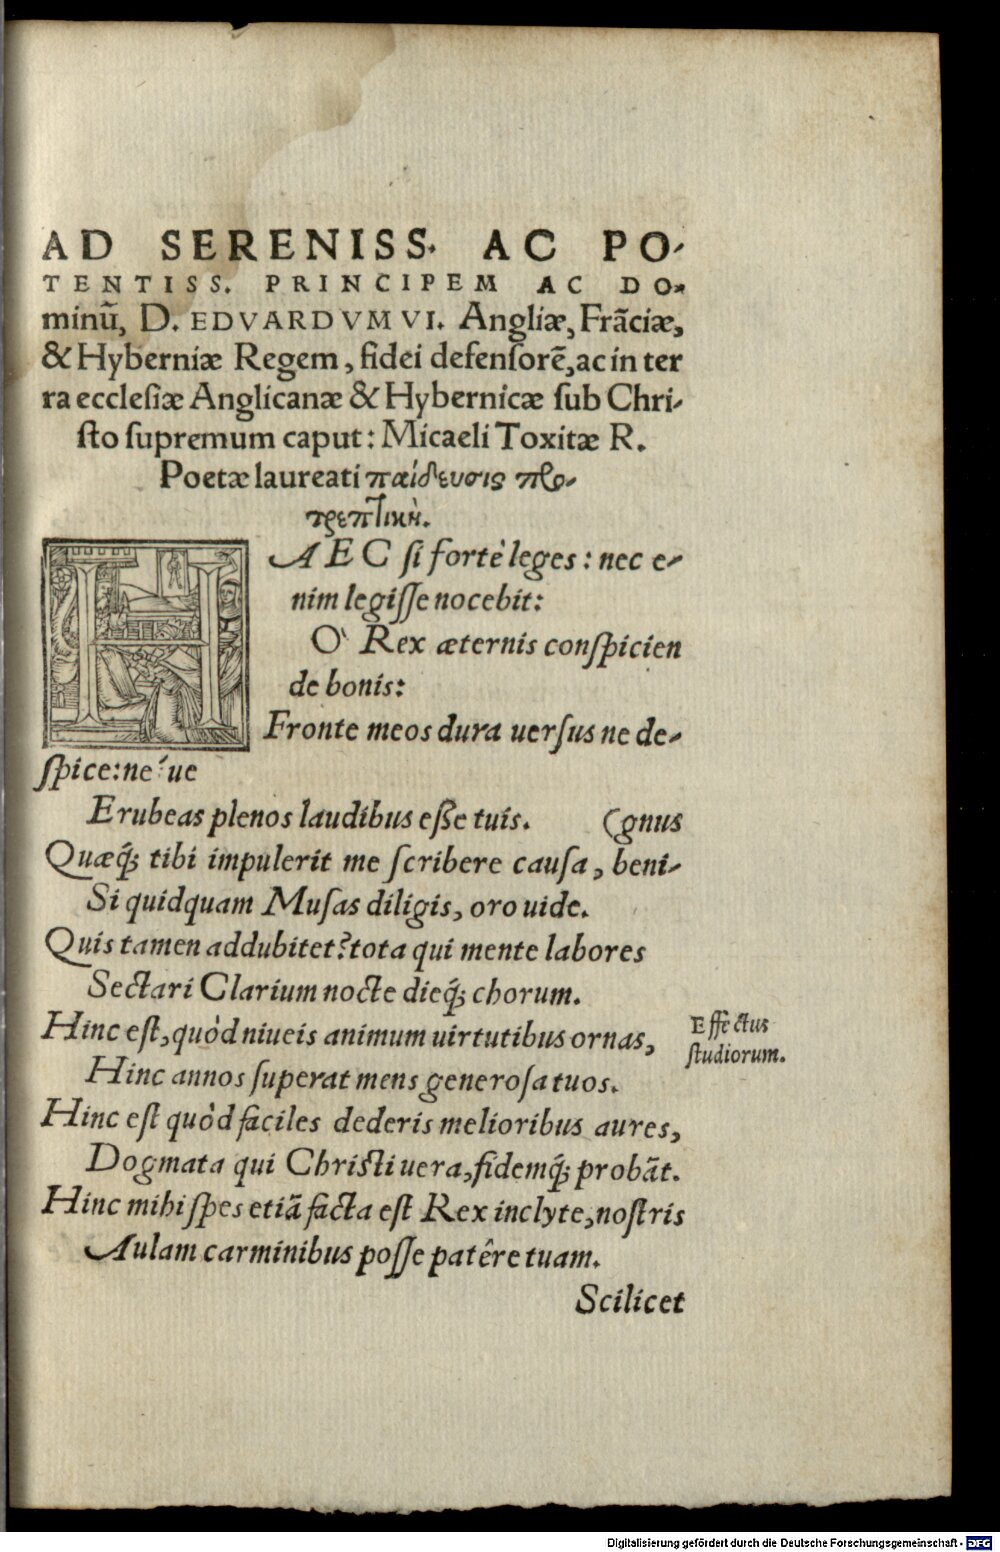 AD SERENISS. AC PO-
TENTISS. PRINCIPEM AC DO-
minũ, D. EDVARDVM VI. Angliæ, Frãciæ,
& Hyberniæ Regem, fidei defenſorẽ, ac in ter
ra eccleſiæ Anglicanæ & Hybernicæ ſub Chri-
ſto ſupremum caput: Micaeli Toxitæ R.
Poetæ laureati παίδευσις προ-
τρεπτικὴ.
HAEC ſi fortè leges: nec e-
nim legiſſe nocebit:
O` Rex æternis conſpicien
de bonis:
Fronte meos dura uerſus ne de-
ſpice: ne´ue
Erubeas plenos laudibus eſſe tuis. (gnus
Quæq́; tibi impulerit me ſcribere cauſa, beni-
Si quidquam Muſas diligis, oro uide.
Quis tamen addubitet? tota qui mente labores
Sectari Clarium nocte dieq́; chorum.
Hinc eſt, quòd niueis animum uirtutibus ornas,
Effectus
ſtudiorum.
Hinc annos ſuperat mens generoſa tuos.
Hinc eſt quòd faciles dederis melioribus aures,
Dogmata qui Chriſti uera, fidemq́; probãt.
Hinc mihi ſpes etiã facta eſt Rex inclyte, noſtris
Aulam carminibus poſſe patêre tuam.
Scilicet
Digitalisierung gefördert durch die Deutsche Forschungsgemeinschaft - DFG